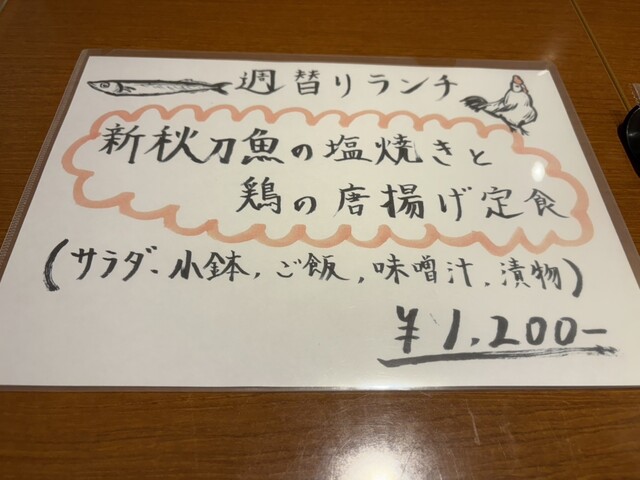 週替りランチ
新秋刀魚の塩焼きと
鶏の唐揚げ定食
(サラダ、小鉢,ご飯,味噌汁,漬物)
¥1,200-